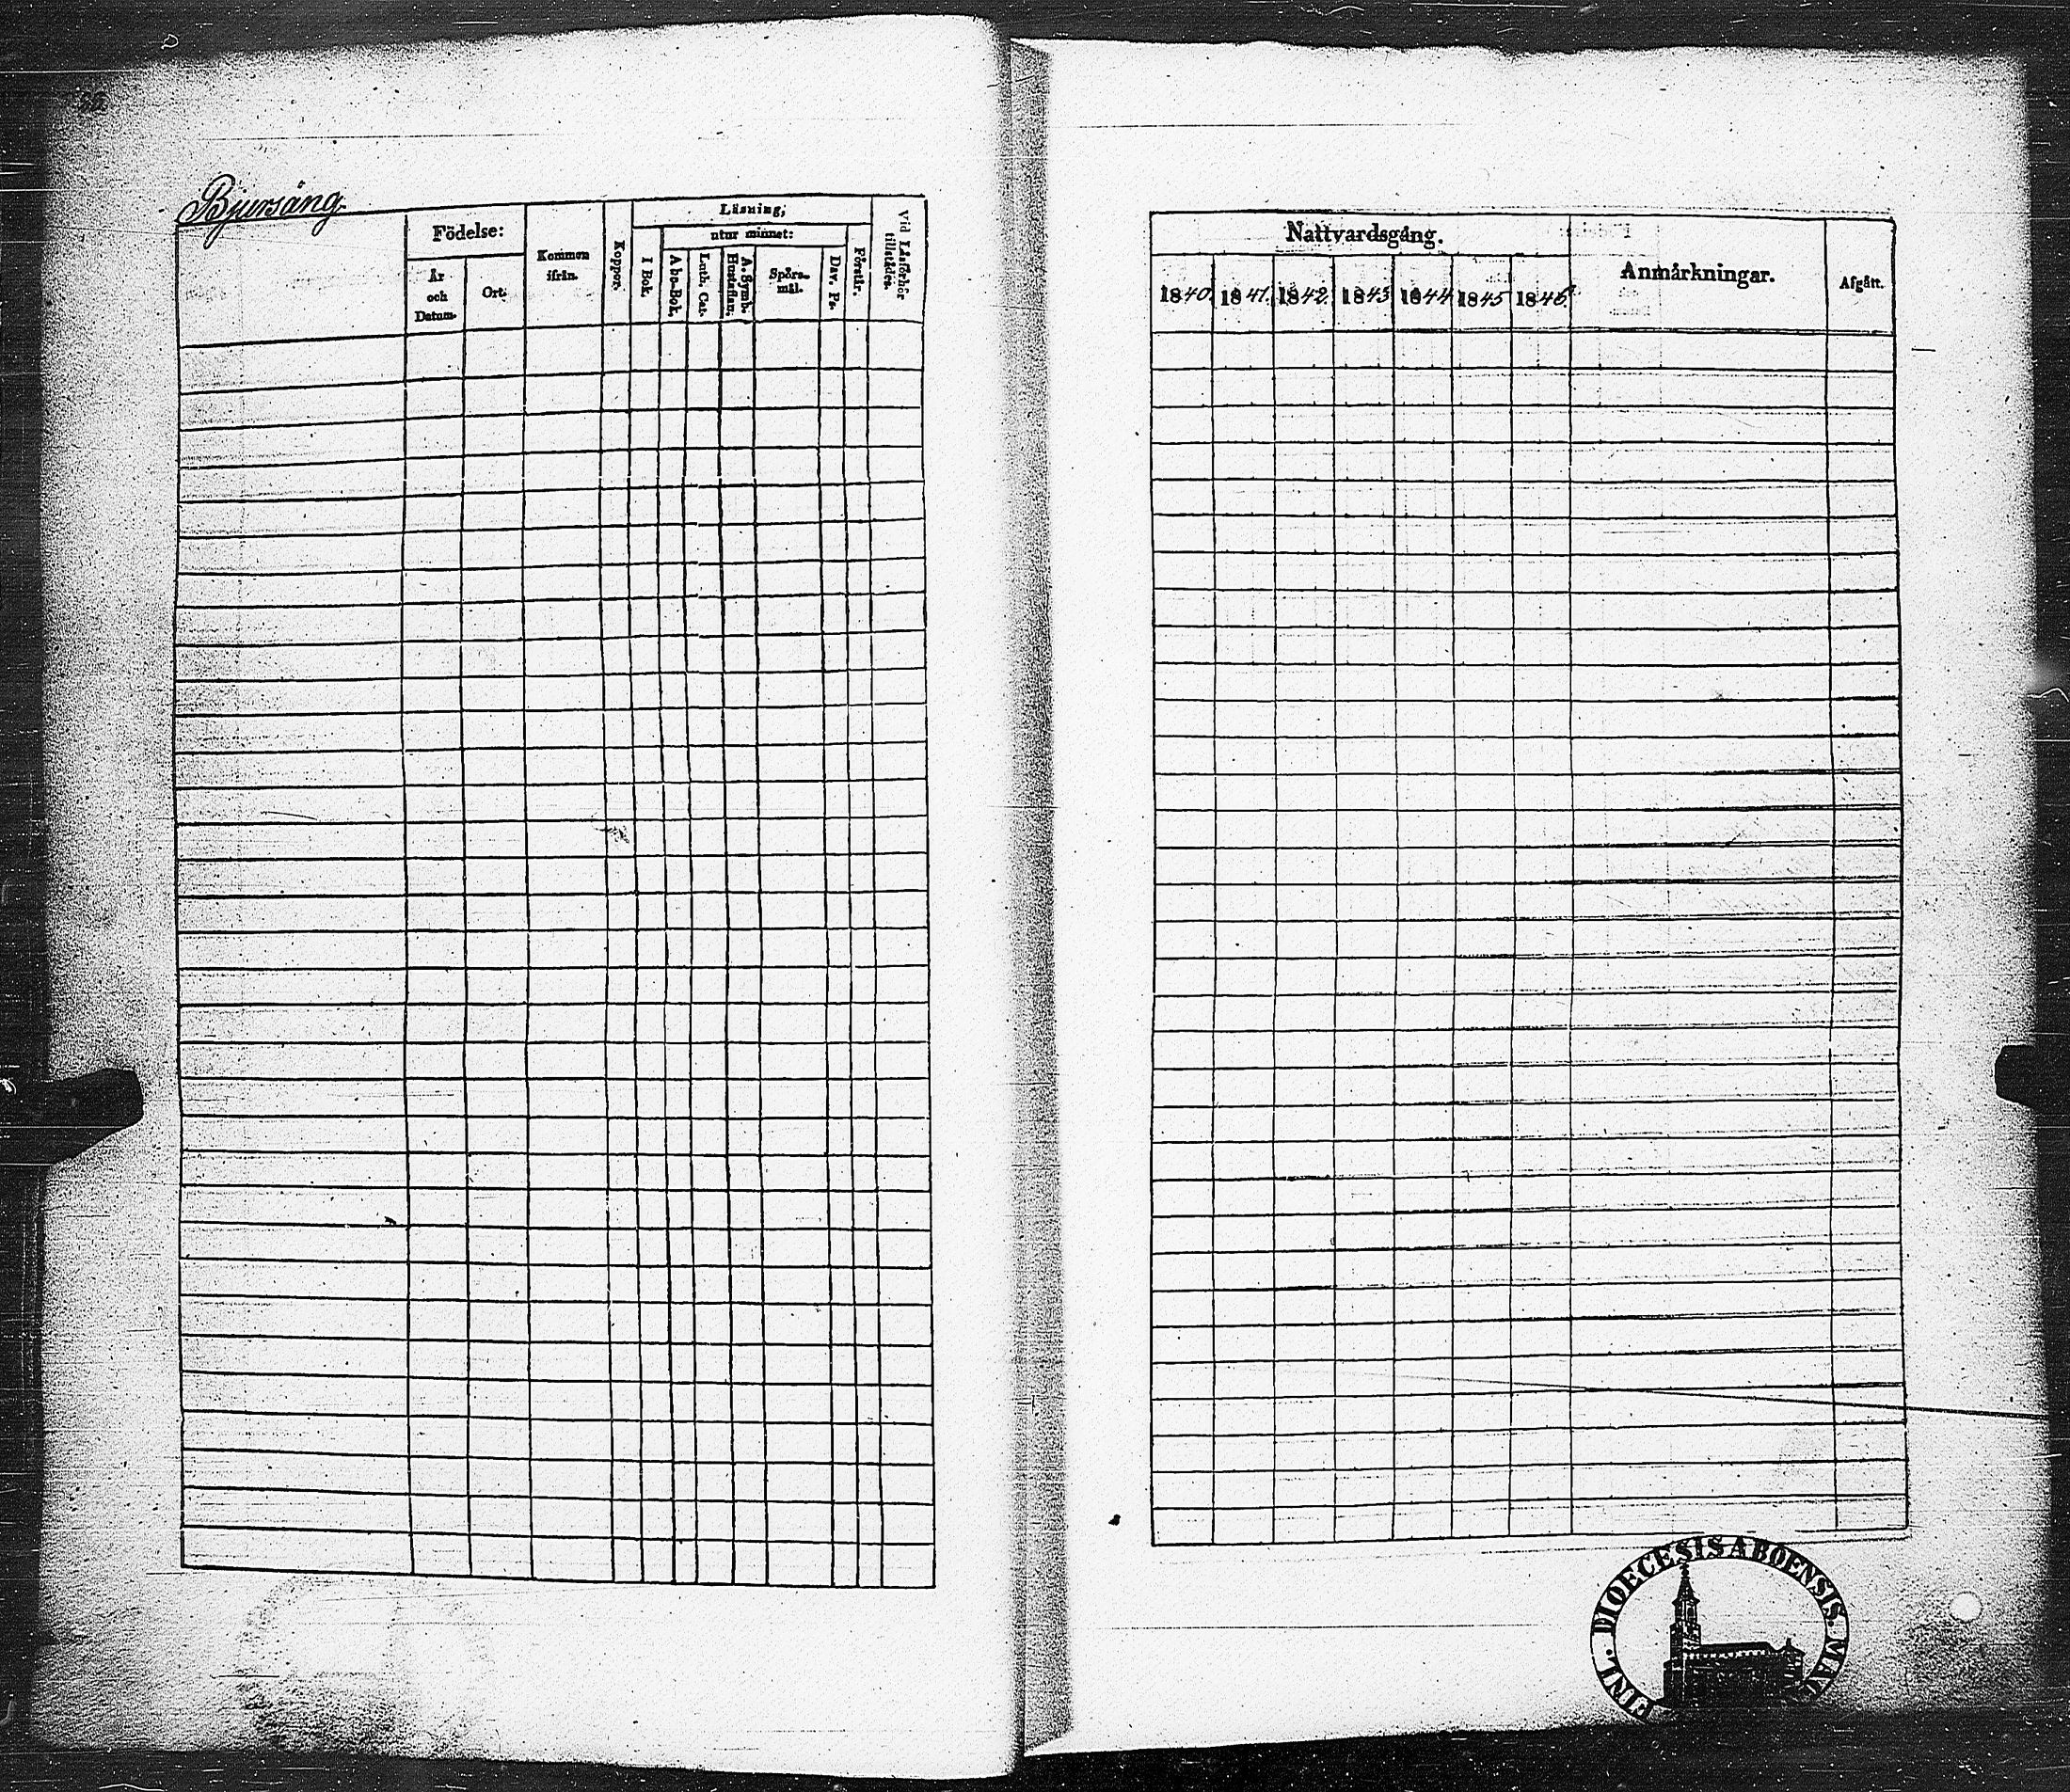 Bjursäng
Födelse:
År och Datum.
Ort.
Kommen ifrån.
Koppor.
Läsning,
utur minnet:
I Bok.
A bc-Bok.
Luth. Cat.
A. Symb. Hustaflan.
Spörs-mål.
Dav. Ps.
Förstår.
Vid Läsförhör tillstädes.
Nattvardsgång.
1840. 1841. 1842. 1843 1844 1845 1846.
Anmärkningar.
Afgått.
FINL. DIOECESIS ABOENSIS.